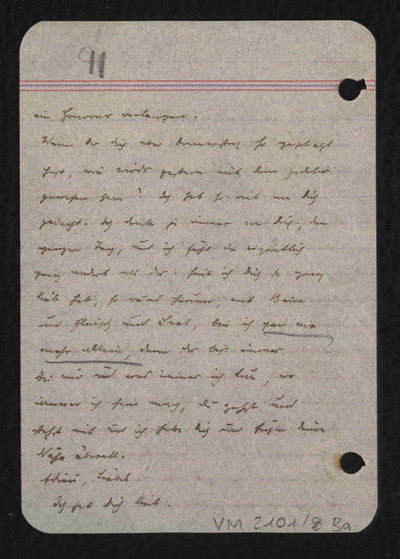 91
ein Honorar verlangen.
Wenn Du Dich aber Donnerstag so geplagt
hast, wie wirds gestern mit dem
gewesen sein? Ich hab so viel an Dich
gedacht. Ich denke ja immer an Dich, den
ganzen Tag, und ich fühl da eigentlich
ganz anders als Du: seit ich Dich so ganz
lieb hab, so mit Bein
und Fleisch und Seel, bin ich gar nie
mehr allein, denn Du bist immer
bei mir und was immer ich tue, wo
immer ich sein mag, Du gehst und
stehst mit mir ich habe Dich und fühle Deine
Nähe überall.
Adieu, Liebes!
Ich hab Dich lieb.
VM 2101/8 Ba